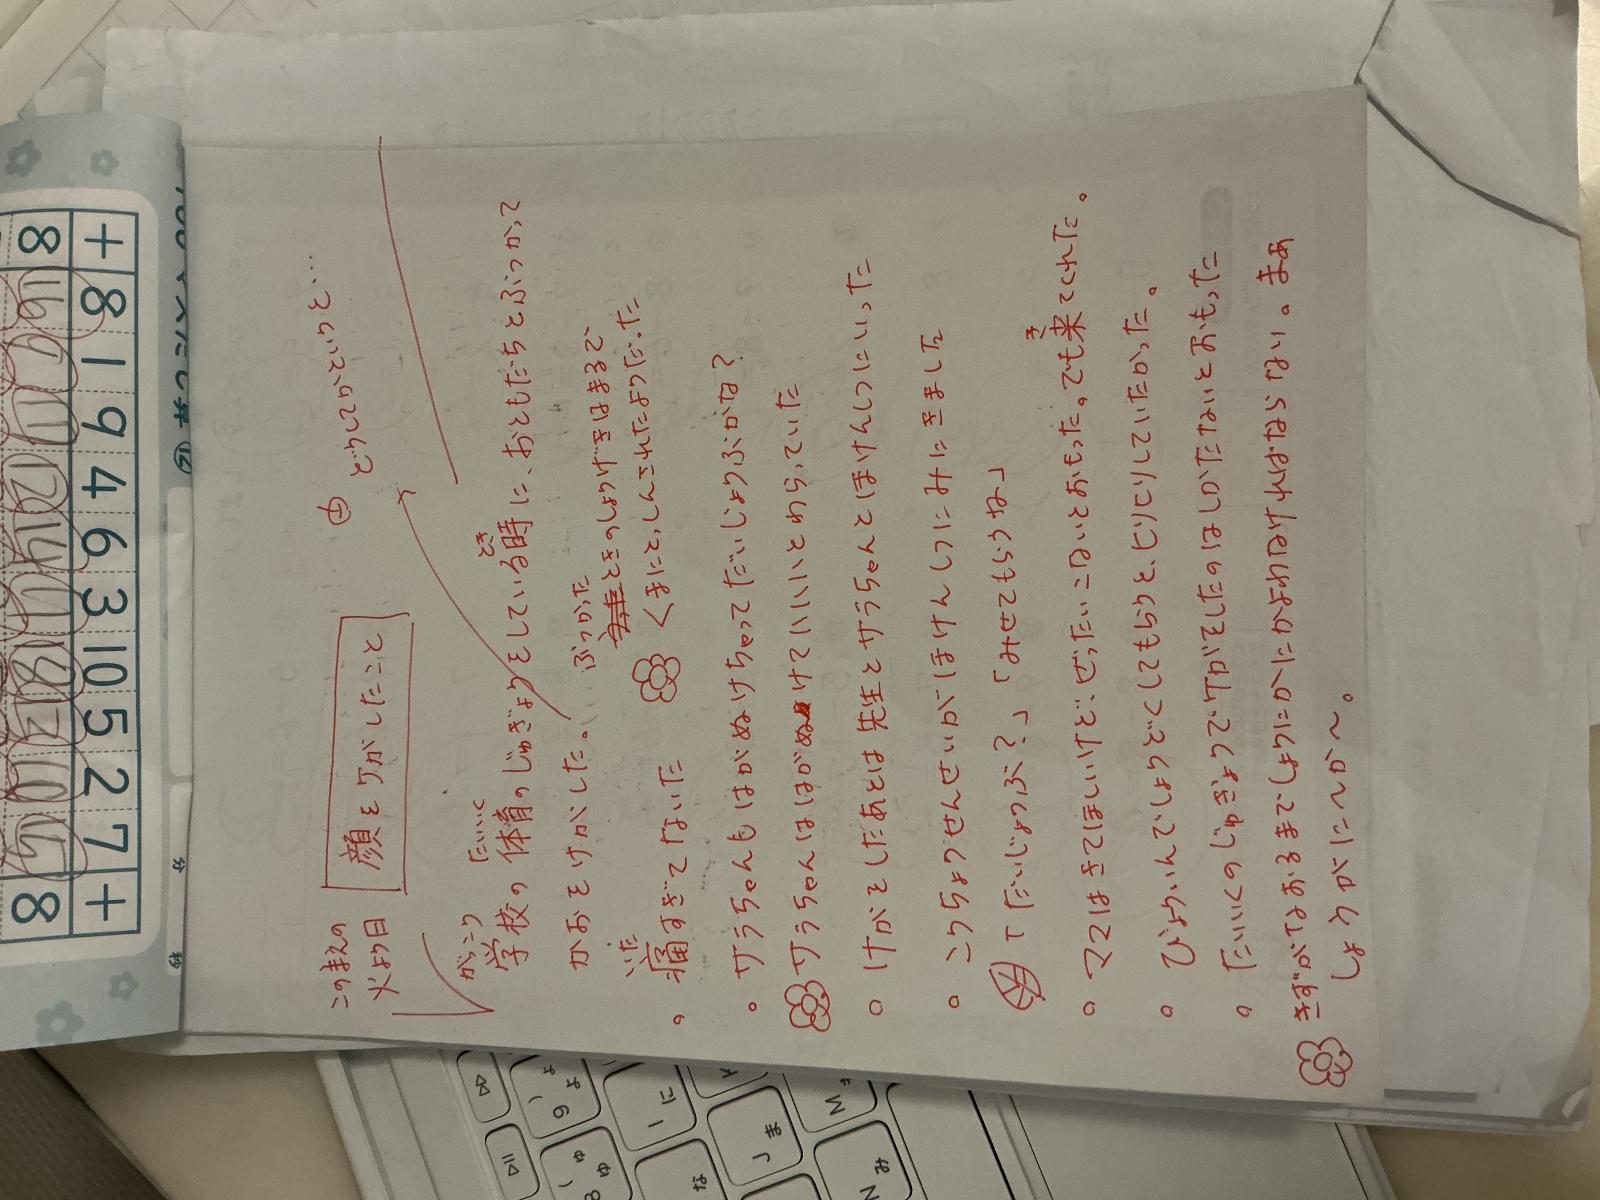 この前えの
火よう日
顔をケガしたこと
㊥ どうしてかというと…
がっこう たいいく とき
学校の体育のじゅぎょうをしている時に、おともだちとぶつかって
かおをけがした。
ぶつかった
ときのしょうげきはまるで
くまにとっしんされたようだった
いた
痛すぎてないた
サラちゃんもはがぬけちゃってだいじょうぶかな？
サラちゃんははがぬけてハハハとわらっていた
けがをしたあとは先生とサラちゃんとほけんしつにいった
こうちょうせんせいがほけんしつにみにきました
て「だいじょうぶ？」「みせてもらうね」
き
ママはきてほしいけど、ぜったいこないとおもった。でも来てくれた。
びょういんで、どうしよ、どうしよってドキドキしていたかった。
たいいくのじゅぎょうでケガをしたのはしかたないとおもった
きずがなおるまで、しょうがにかよわなければならない。まぁ
しょうがにへか〜。
+ 8 1 9 4 6 3 10 5 2 7 +
8 16 9 17 12 14 11 18 13 10 15 8
分
秒